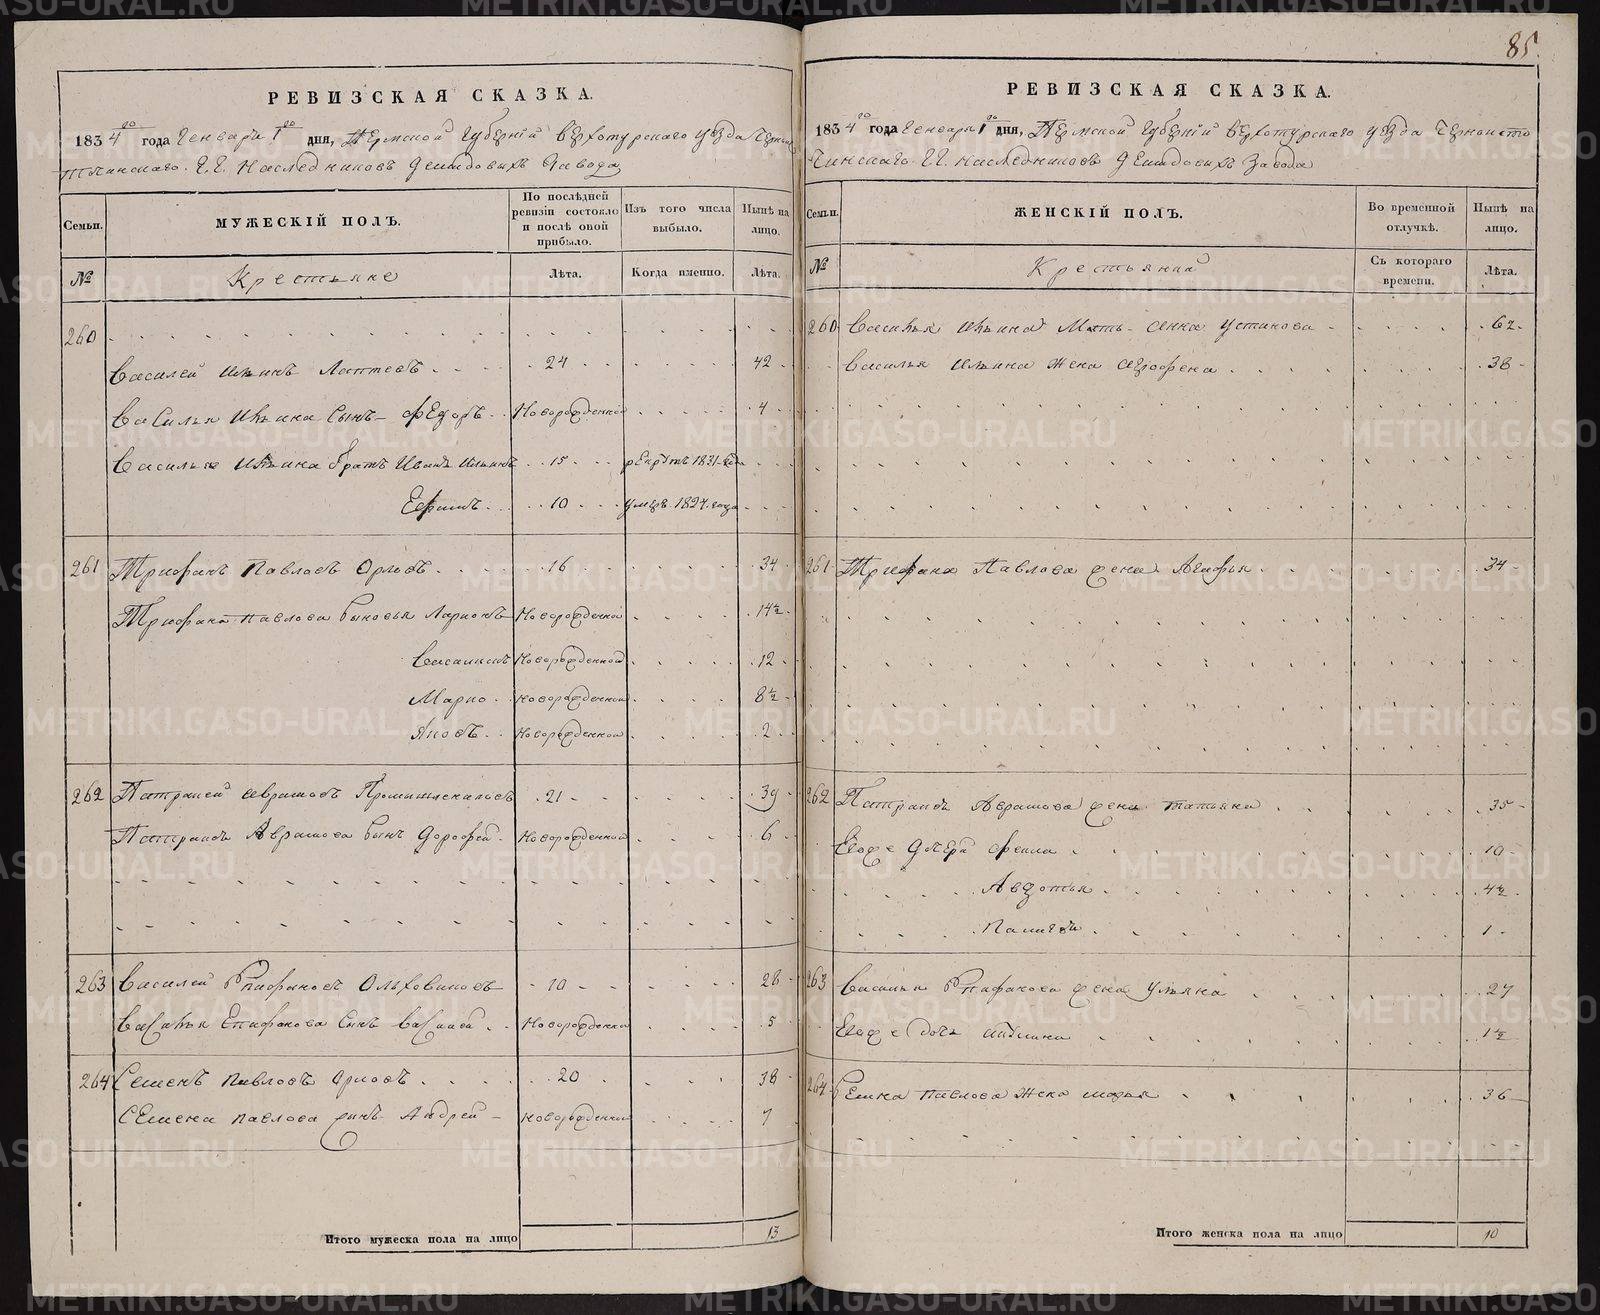 РЕВИЗСКАЯ СКАЗКА.
1834го года Генваря 1го дня, Пермской Губернiи Верхотурскаго уезда Черноис
точинскаго. Г.Г. Наследниковъ Демидовыхъ Завода
Семьи.
МУЖЕСКІЙ ПОЛЪ.
По послѣдней ревизіи состояло и послѣ оной прибыло.
Изъ того числа выбыло.
Нынѣ на лицо.
№
Крестьяне
Лѣта.
Когда именно.
Лѣта.
260
Василей Ильинъ Лаптевъ 24 42
Василья Ильина Сынъ Федоръ Новорожденной 4
Василья Ильина братъ Иванъ Ильинъ 15 рекрутъ 1831 года
Ефимъ 10 умеръ 1827 года
261 Трифанъ Павловъ Орловъ 16 34
Трифана Павлова Сыновья Ларионъ Новорожденной 14½
Новорожденной 12
Марко Новорожденной 8½
Яковъ Новорожденной 2
262 Патракей Аврамовъ 21 39
Аврамова Сынъ Дорофей Новорожденной 6
263 Василей Епифановъ Ольховиковъ 10 28
Василья Епифанова Сынъ Новорожденной 5
264 Семенъ Павловъ Орловъ 20 38
Семена Павлова Сынъ Андрей Новорожденной 7
Итого мужеска пола на лицо 13
85
РЕВИЗСКАЯ СКАЗКА.
1834го года Генваря 1го дня, Пермской Губернiи Верхотурскаго уезда Черноисто
чинскаго Г.Г. Наследниковъ Демидовыхъ Завода
Семьи.
ЖЕНСКІЙ ПОЛЪ.
Во временной отлучкѣ.
Нынѣ на лицо.
№
Крестьянки
Съ котораго времени.
Лѣта.
260 Василья Ильина Мать Анна Устинова 62
Василья Ильина Жена 38
261 Трифана Павлова жена Агафья 34
262 Аврамова жена Татьяна 35
Егоже Дочери Фекла 10
Авдотья 4½
1
263 Василья Епифанова жена Ульяна 27
Егоже дочь 1½
264 Семена Павлова Жена Марья 36
Итого женска пола на лицо 10
METRIKI.GASO-URAL.RU